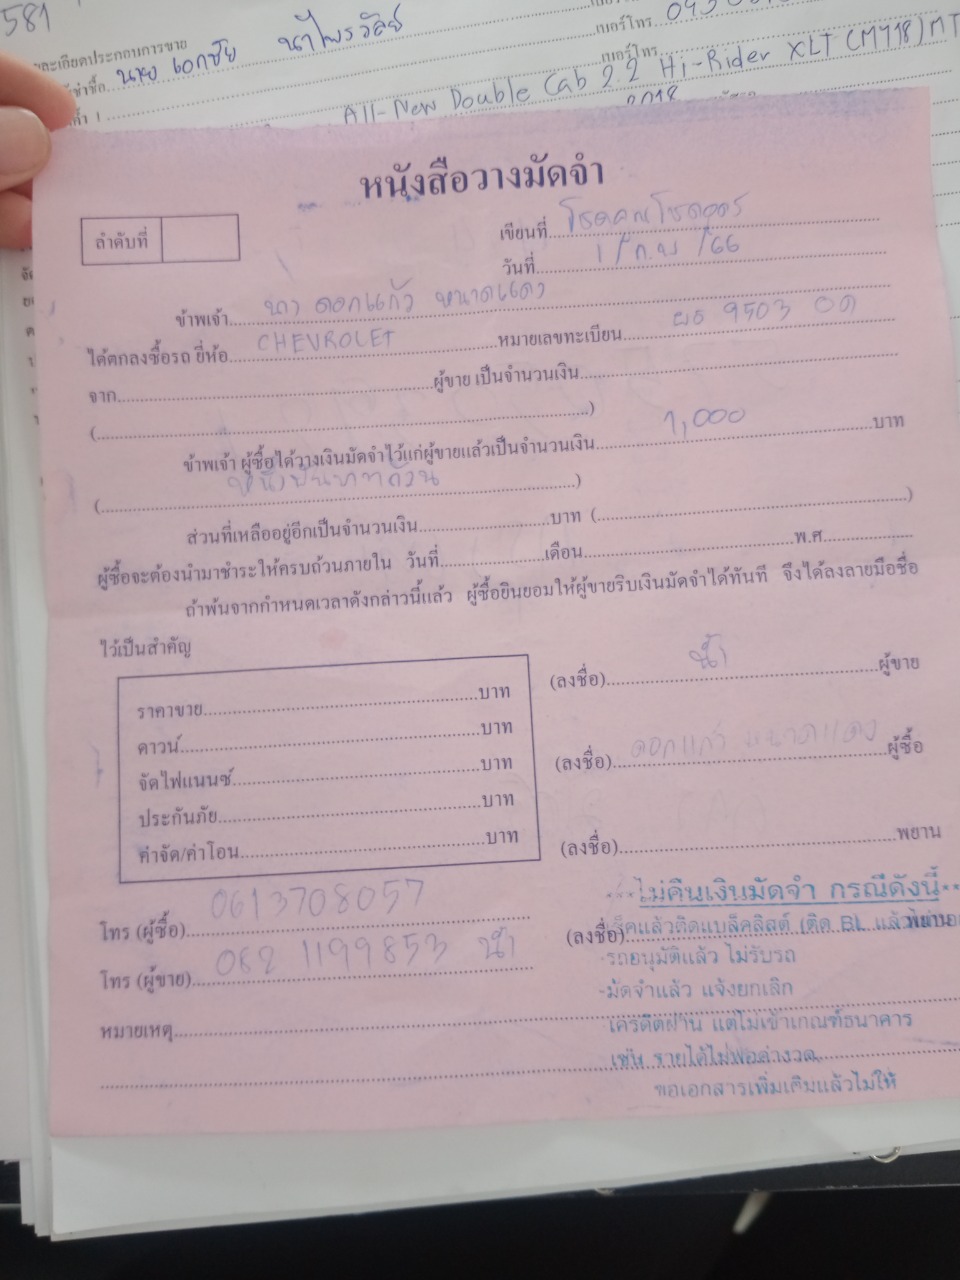 581
ละเอียดประกอบการขาย
เบอร์โทร.
ชื่อ นาย เอกชัย นาไพรวัลย์
เบอร์โทร.
All-New Double Cab 2.2 Hi-Rider XLT (MY18) MT
2018
หนังสือวางมัดจำ
ลำดับที่
เขียนที่
วันที่ 1 / ก.พ / 66
ข้าพเจ้า นาง ดอกแก้ว หนาดแดง
ได้ตกลงซื้อรถ ยี่ห้อ CHEVROLET หมายเลขทะเบียน ผธ 9503 อด
จาก ผู้ขาย เป็นจำนวนเงิน
( )
ข้าพเจ้า ผู้ซื้อได้วางเงินมัดจำไว้แก่ผู้ขายแล้วเป็นจำนวนเงิน 1,000 บาท
( หนึ่งพันบาทถ้วน )
ส่วนที่เหลืออยู่อีกเป็นจำนวนเงิน บาท ( )
ผู้ซื้อจะต้องนำมาชำระให้ครบถ้วนภายใน วันที่ เดือน พ.ศ.
ถ้าพ้นจากกำหนดเวลาดังกล่าวนี้แล้ว ผู้ซื้อยินยอมให้ผู้ขายริบเงินมัดจำได้ทันที จึงได้ลงลายมือชื่อ
ไว้เป็นสำคัญ
ราคาขาย บาท
ดาวน์ บาท
จัดไฟแนนซ์ บาท
ประกันภัย บาท
ค่าจัด/ค่าโอน บาท
(ลงชื่อ) น้ำ ผู้ขาย
(ลงชื่อ) ดอกแก้ว หนาดแดง ผู้ซื้อ
(ลงชื่อ) พยาน
โทร (ผู้ซื้อ) 0613708057
(ลงชื่อ) พยาน
โทร (ผู้ขาย) 062 1199853 น้ำ
หมายเหตุ
ไม่คืนเงินมัดจำ กรณีดังนี้
เช็คแล้วติดแบล็คลิสต์ (ติด BL แล้วไม่
-รถอนุมัติแล้ว ไม่รับรถ
-มัดจำแล้ว แจ้งยกเลิก
เครดิตผ่าน แต่ไม่เข้าเกณฑ์ธนาคาร
เช่น รายได้ไม่พอค่างวด,
ขอเอกสารเพิ่มเติมแล้วไม่ให้